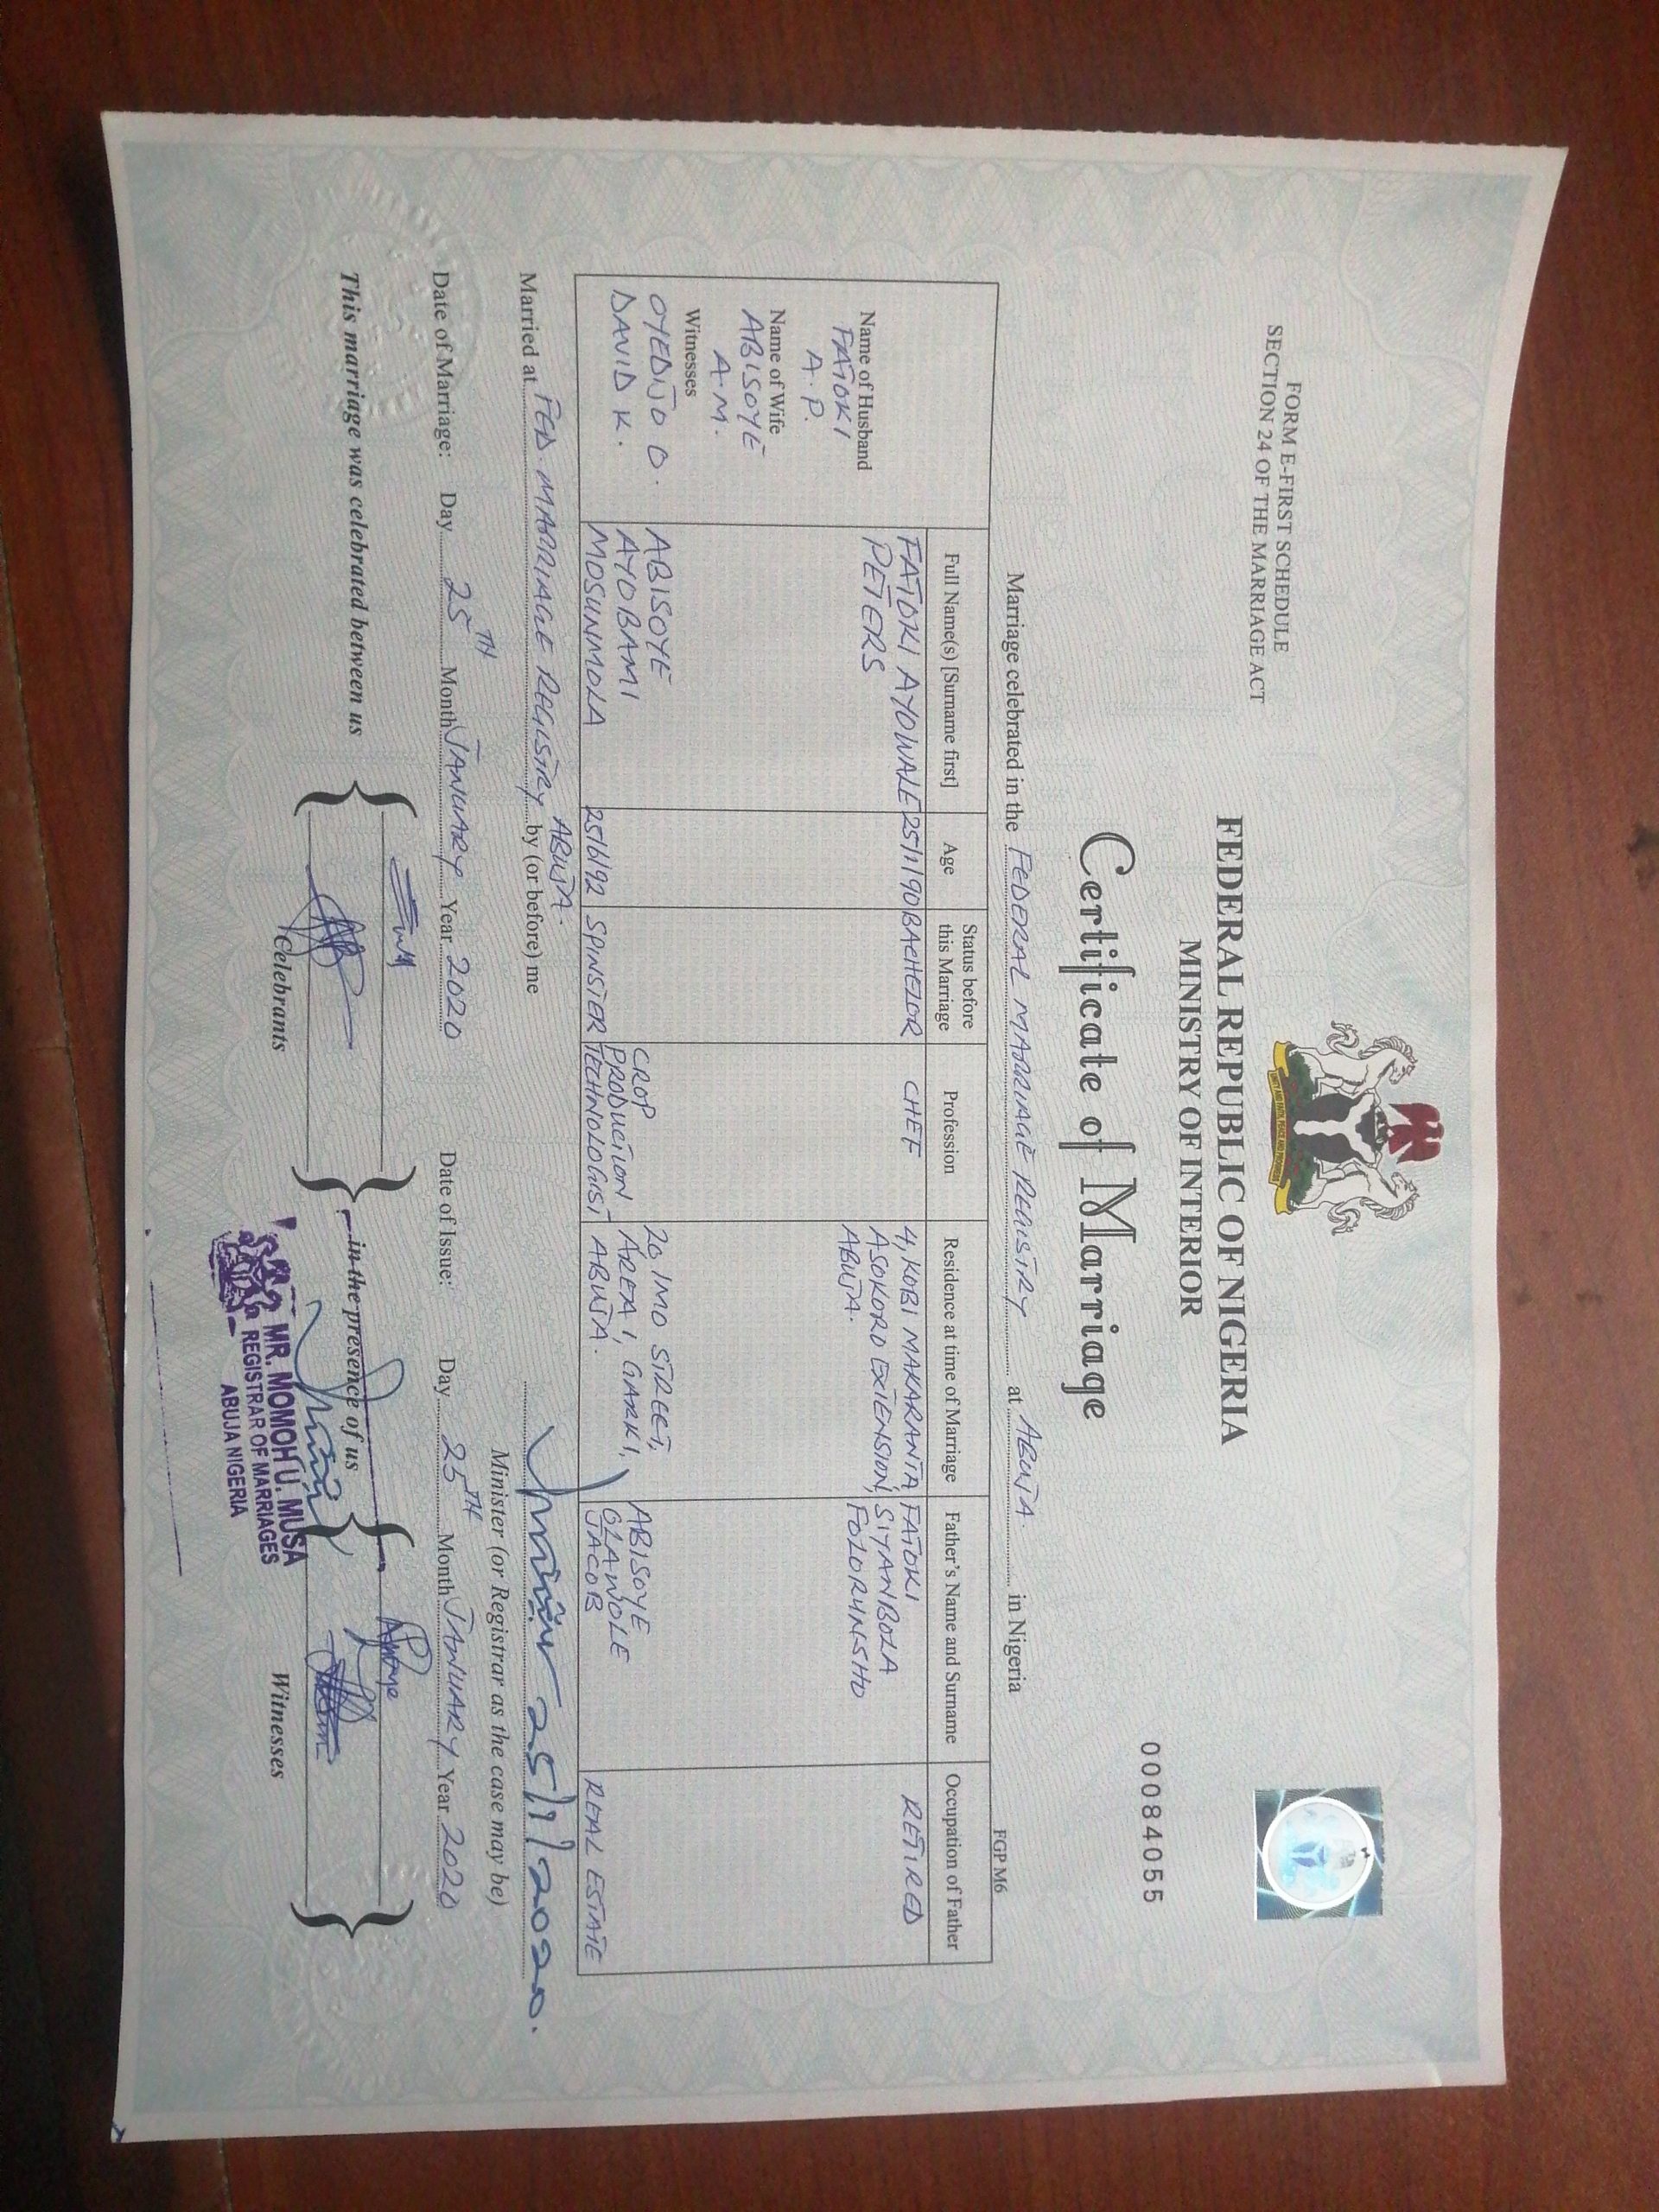 FORM E-FIRST SCHEDULE
SECTION 24 OF THE MARRIAGE ACT
FEDERAL REPUBLIC OF NIGERIA
MINISTRY OF INTERIOR
Certificate of Marriage
00084055
FGP M6
Marriage celebrated in the FEDERAL MARRIAGE REGISTRY at ABUJA. in Nigeria
Full Name(s) [Surname first]
Age
Status before
this Marriage
Profession
Residence at time of Marriage
Father's Name and Surname
Occupation of Father
Name of Husband
FATOKI
A.P.
FATOKI AYOWALE
PETERS
25/1/90
BACHELOR
CHEF
4, KOBI MAKARANTA,
ASOKORO EXTENSION,
ABUJA.
FATOKI
SIYANBOLA
FOLORUNSHO
RETIRED
Name of Wife
ABISOYE
A.M.
Witnesses
OYEDIJO O.
DAVID K.
ABISOYE
AYOBAMI
MOSUNMOLA
25/6/92
SPINSTER
CROP
PRODUCTION
TECHNOLOGIST
20, IMO STREET,
AREA 1, GARKI,
ABUJA.
ABISOYE
OLAWOLE
JACOB
REAL ESTATE
Married at FED. MARRIAGE REGISTRY ABUJA. by (or before) me
25/1/2020.
Minister (or Registrar as the case may be)
Date of Marriage: Day 25TH Month JANUARY Year 2020 Date of Issue: Day 25TH Month JANUARY Year 2020
This marriage was celebrated between us
in the presence of us
Celebrants
Witnesses
MR. MOMOH U. MUSA
REGISTRAR OF MARRIAGES
ABUJA NIGERIA